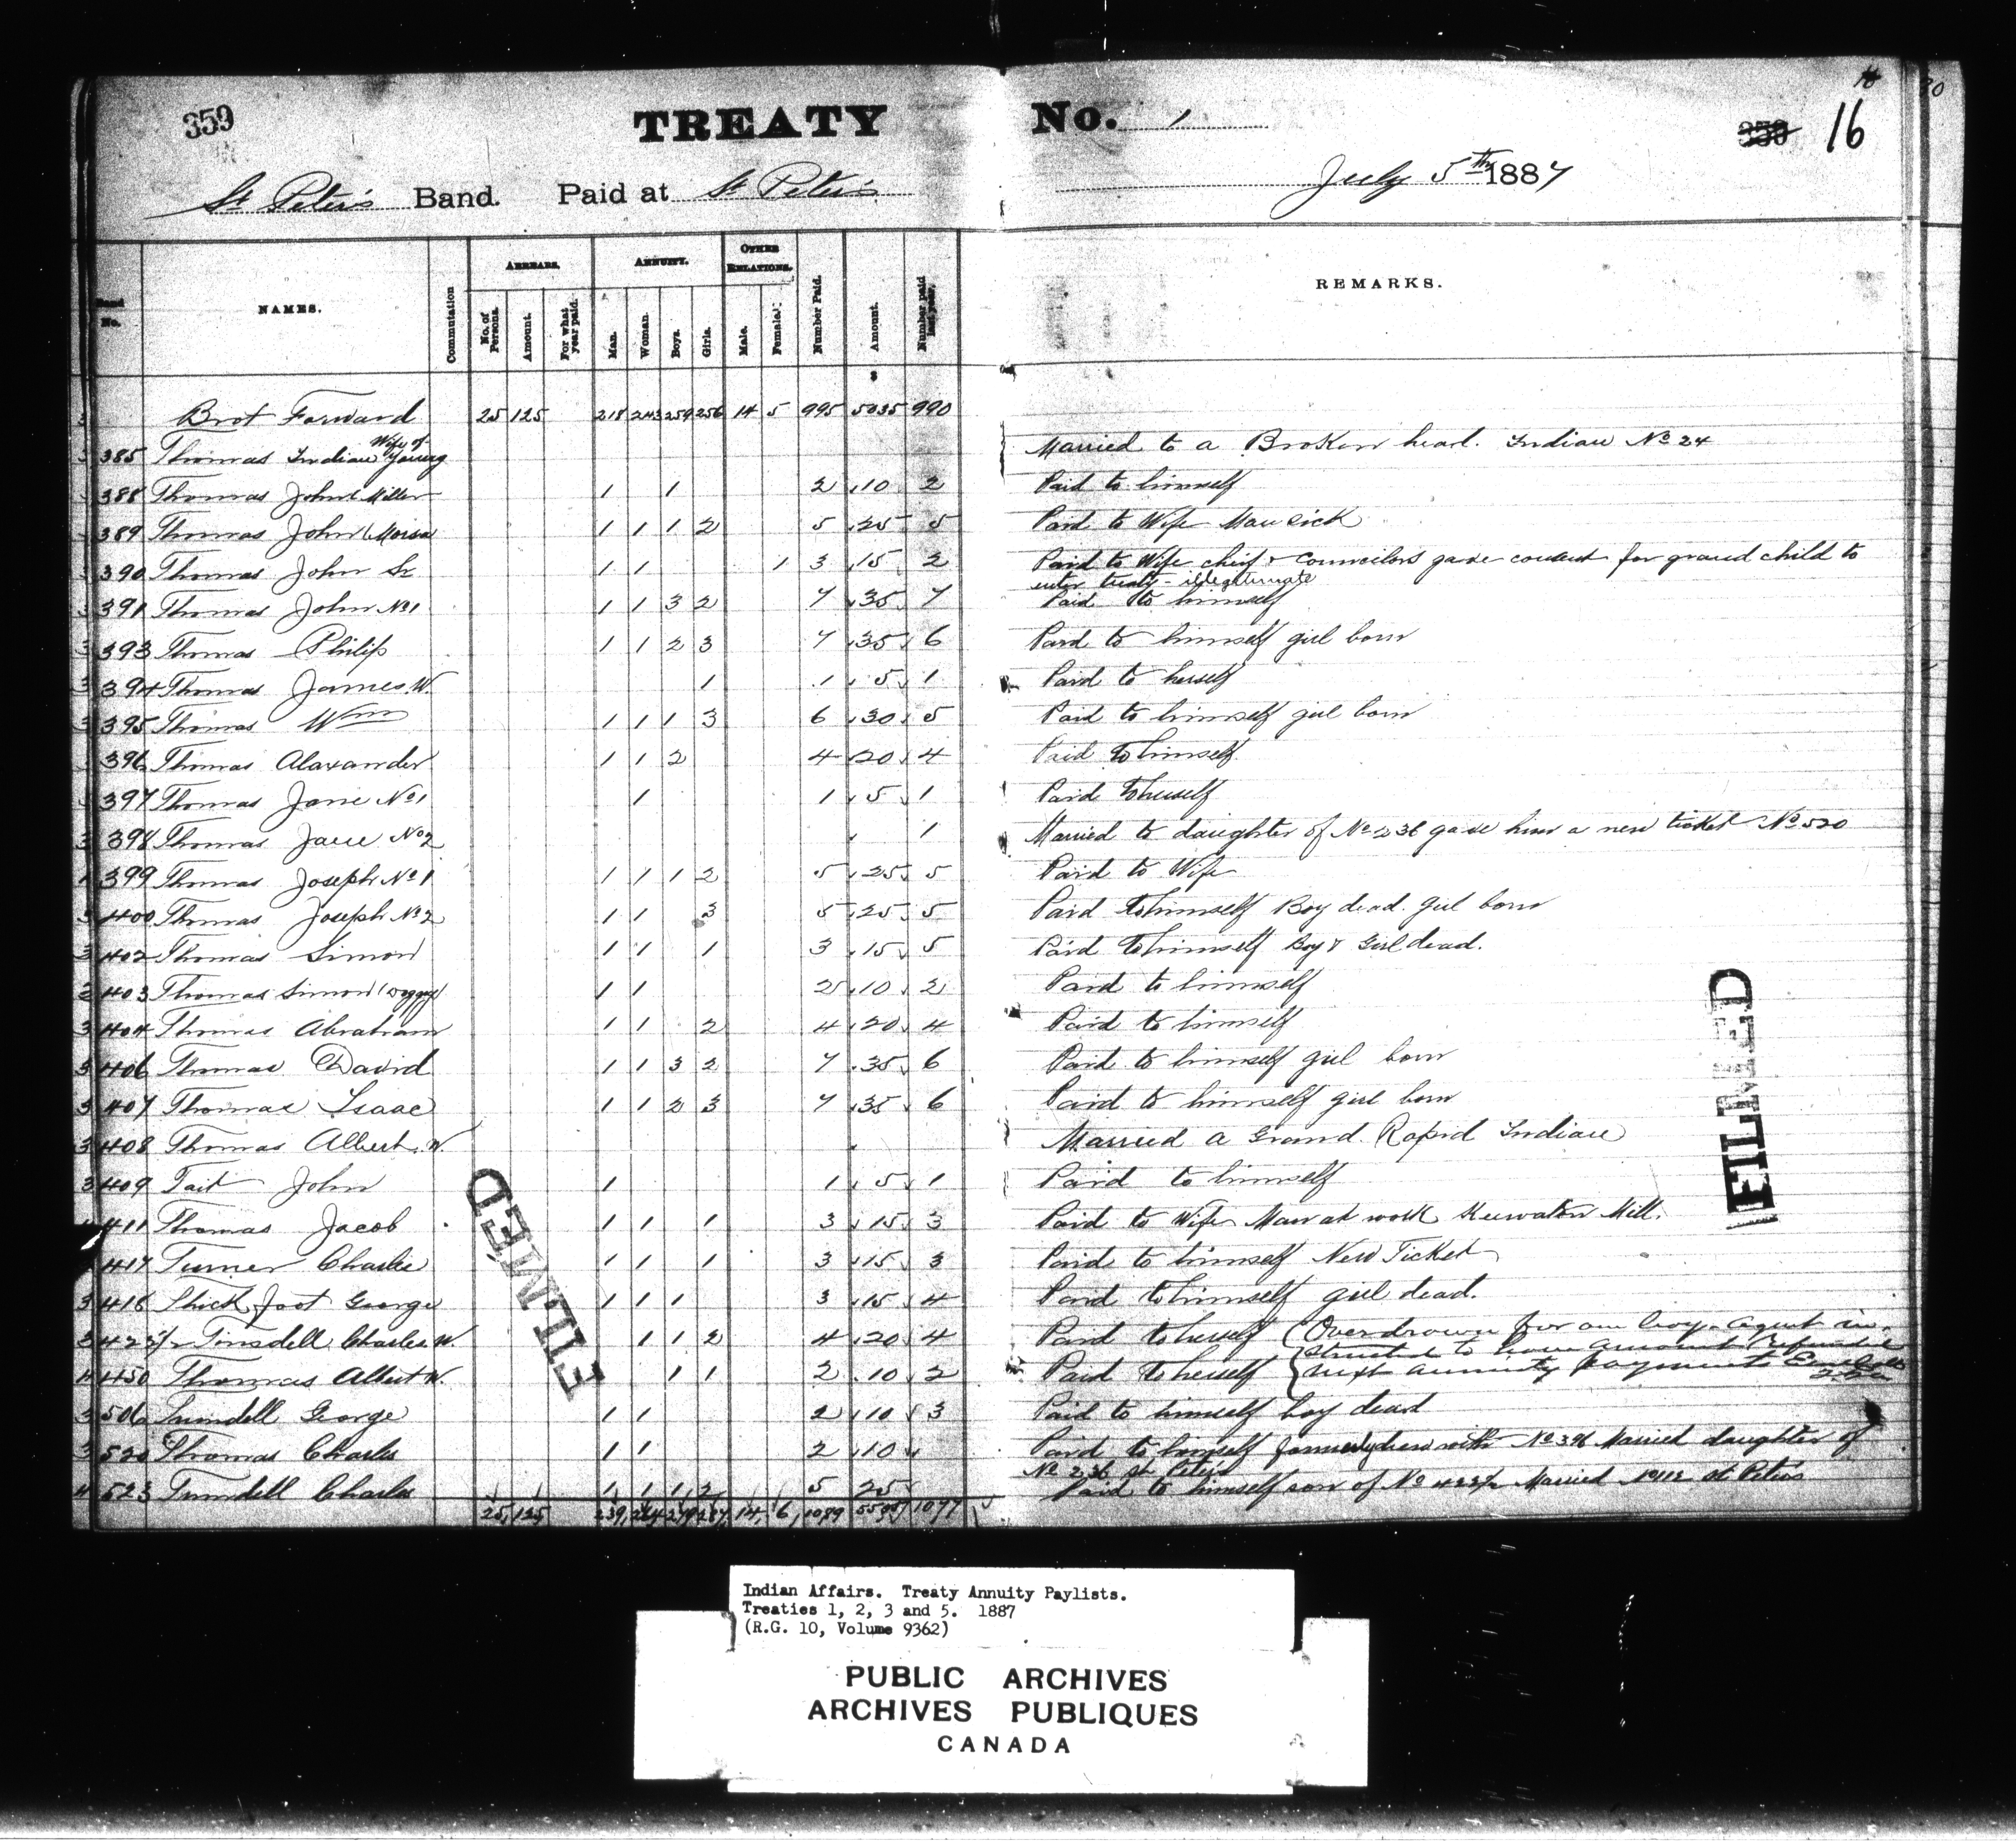 359
TREATY No. 1
359 16
St Peter's Band. Paid at St Peter's
July 5th 1887
Band No. NAMES. Commutation ARREARS. No. of Persons. Amount. For what year paid. ANNUITY. Man. Woman. Boys. Girls. OTHER RELATIONS. Male. Female. Number Paid. Amount. Number paid last year. REMARKS.
$
Brot Forward 25 125 218 243 259 256 14 5 995 5035 990
385 Thomas Indian Young Wife of Married to a Broken head. Indian No 24
388 Thomas John Miller 1 1 2 10 2 Paid to himself
389 Thomas John 1 1 1 2 5 25 5 Paid to Wife Man sick
390 Thomas John Sr 1 1 1 3 15 2 Paid to Wife chief & Councilors gave consent for grand child to
enter treaty - illegitimate
391 Thomas John No 1 1 1 3 2 7 35 7 Paid to himself
393 Thomas Philip 1 1 2 3 7 35 6 Paid to himself girl born
394 Thomas James W. 1 1 5 1 Paid to herself
395 Thomas Wm 1 1 1 3 6 30 5 Paid to himself girl born
396 Thomas Alaxander 1 1 2 4 20 4 Paid to himself
397 Thomas Jane No 1 1 1 5 1 Paid to herself
398 Thomas Jane No 2 1 Married to daughter of No 236 gave him a new ticket No 520
399 Thomas Joseph No 1 1 1 1 2 5 25 5 Paid to Wife
400 Thomas Joseph No 2 1 1 3 5 25 5 Paid to himself Boy dead. girl born
402 Thomas Simon 1 1 1 3 15 5 Paid to himself Boy & Girl dead.
403 Thomas Simon 1 1 2 10 2 Paid to himself
404 Thomas Abraham 1 1 2 4 20 4 Paid to himself
406 Thomas David 1 1 3 2 7 35 6 Paid to himself girl born
407 Thomas Isaac 1 1 2 3 7 35 6 Paid to himself girl born
408 Thomas Albert W. Married a Grand Rapid Indian
409 Tait John 1 1 5 1 Paid to himself
411 Thomas Jacob 1 1 1 3 15 3 Paid to Wife Man at work Keewaton Mill.
417 Turner Charlie 1 1 1 3 15 3 Paid to himself New Ticket
418 Thick foot George 1 1 1 3 15 4 Paid to himself girl dead.
423½ Tinsdell Charles W. 1 1 2 4 20 4 Paid to herself (Overdrawn for one boy. agent in-
structed to have amount refunded
450 Thomas Albert W. 1 1 2 10 2 Paid to herself next annuity payment
506 Tunsdell George 1 1 2 10 3 Paid to himself boy dead
520 Thomas Charles 1 1 2 10 Paid to himself formerly drew with No 398 Married daughter of
No 236 St Peter's
523 Tunsdell Charles 1 1 1 2 5 25 Paid to himself son of No 423½ Married St Peters
25 125 239 264 279 287 14 6 1089 5505 1077
FILMED
FILMED
Indian Affairs. Treaty Annuity Paylists.
Treaties 1, 2, 3 and 5. 1887
(R.G. 10, Volume 9362)
PUBLIC ARCHIVES
ARCHIVES PUBLIQUES
CANADA